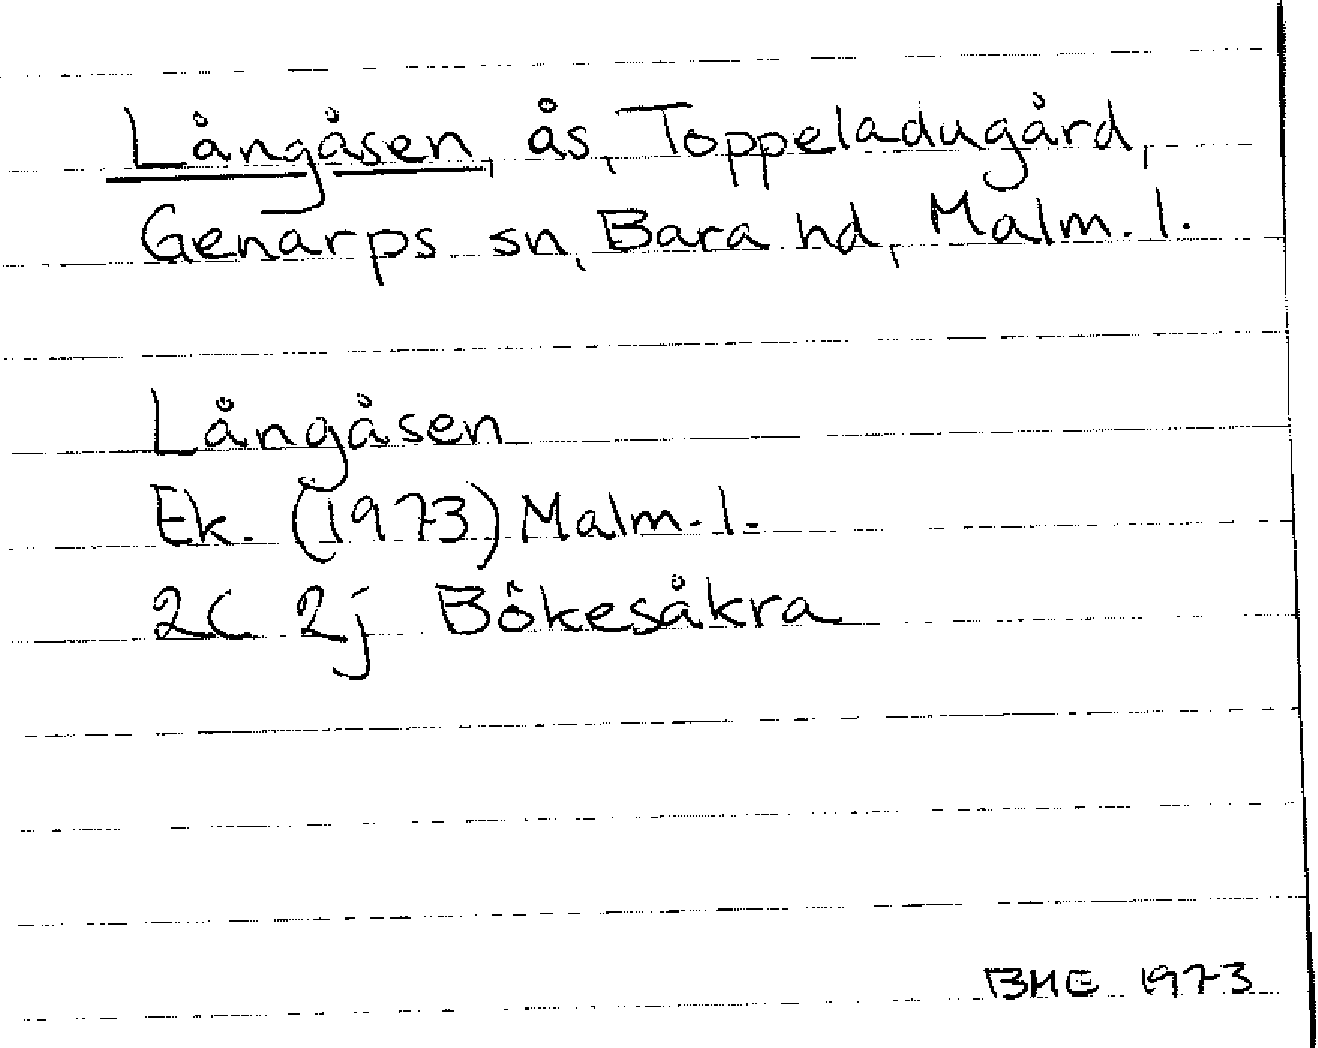 Långåsen, ås, Toppeladugård,
Genarps sn, Bara hd, Malm. l.
Långåsen
Ek. (1973) Malm. l.
2C 2j Bökesåkra
BHE 1973